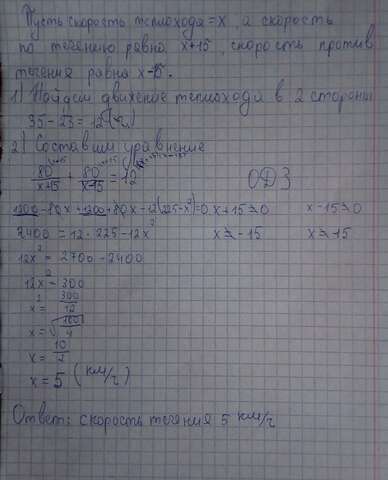 Пусть скорость теплохода = x, а скорость
по течению равна x+15, скорость против
течения равна x-15.
1) Найдем движение теплохода в 2 стороны
35-23=12(ч)
2) Составим уравнение
80/x+15 + 80/x-15 = 12
ОДЗ
1200-80x+1200+80x-12(225-x²)=0 x+15≠0 x-15≠0
2400=12·225-12x² x≠-15 x≠15
12x²=2700-2400
12x²=300
x²=300/12
x=√100/4
x=10/2
x=5 (км/ч)
Ответ: скорость течения 5 км/ч